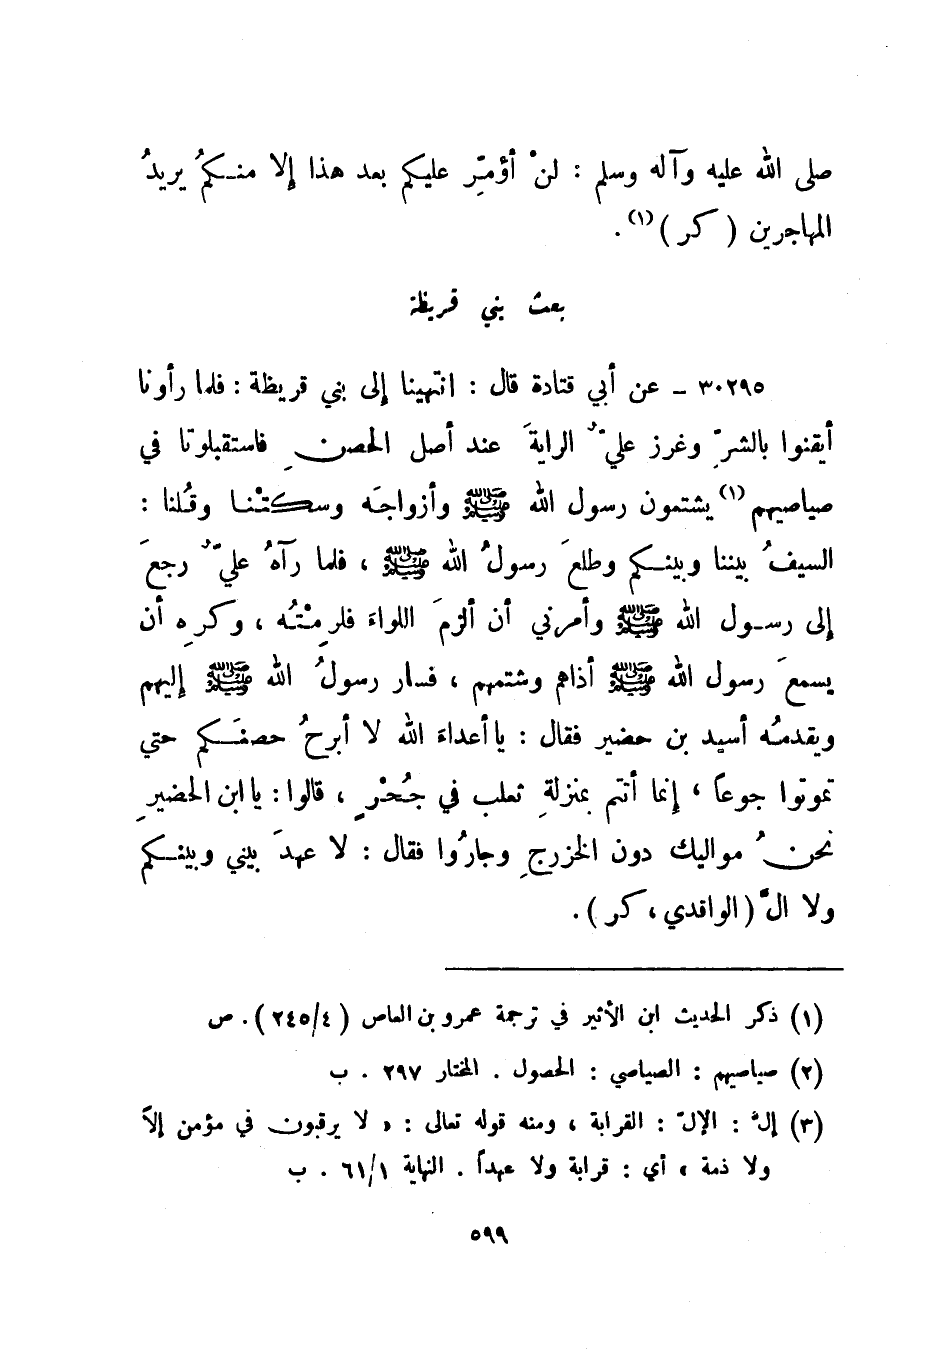 صلى الله عليه وآله وسلم : لنْ أؤمِّر عليكم بعد هذا إلا منكمُ يريدُ
المهاجرين ( كر )(١) .
بعث بني قريظة
٣٠٢٩٥ ـ عن أبي قتادة قال : انتهينا إلى بني قريظة : فلما رأونا
أيقنوا بالشرِّ وغرز عليٌّ الرايةَ عند أصل الحصنِ فاستقبلونا في
صياصيهم(١) يشتمون رسول الله ﷺ وأزواجَه وسكتْنا وقُلنا :
السيفُ بيننا وبينكم وطلعَ رسولُ الله ﷺ ، فلما رآهُ عليٌّ رجعَ
إلى رسول الله ﷺ وأمرني أن ألزمَ اللواءَ فلزِمْتُه ، وكرِه أن
يسمعَ رسول الله ﷺ أذاهم وشتمهم ، فسار رسولُ الله ﷺ إليهم
ويقدمُه أسيد بن حضير فقال : يا أعداءَ الله لا أبرحُ حصنَكم حتي
تموتوا جوعاً ، إنما أنتم بمنزلةِ ثعلب في جُحْرٍ ، قالوا : يا ابن الحضيرِ
نحنُ مواليك دون الخزرجِ وجارُوا فقال : لا عهدَ بيني وبينكم
ولا الٌّ (الواقدي ، كر ) .
(١) ذكر الحديث ابن الأثير في ترجمة عمرو بن العاص ( ٢٤٥/٤ ) . ص
(٢) صياصيهم : الصياصي : الحصول . المختار ٢٩٧ . ب
(٣) إلٌّ : الإلّ : القرابة ، ومنه قوله تعالى : « لا يرقبون في مؤمن إلاًّ
ولا ذمة » أي : قرابة ولا عهداً . النهاية ٦١/١ . ب
٥٩٩